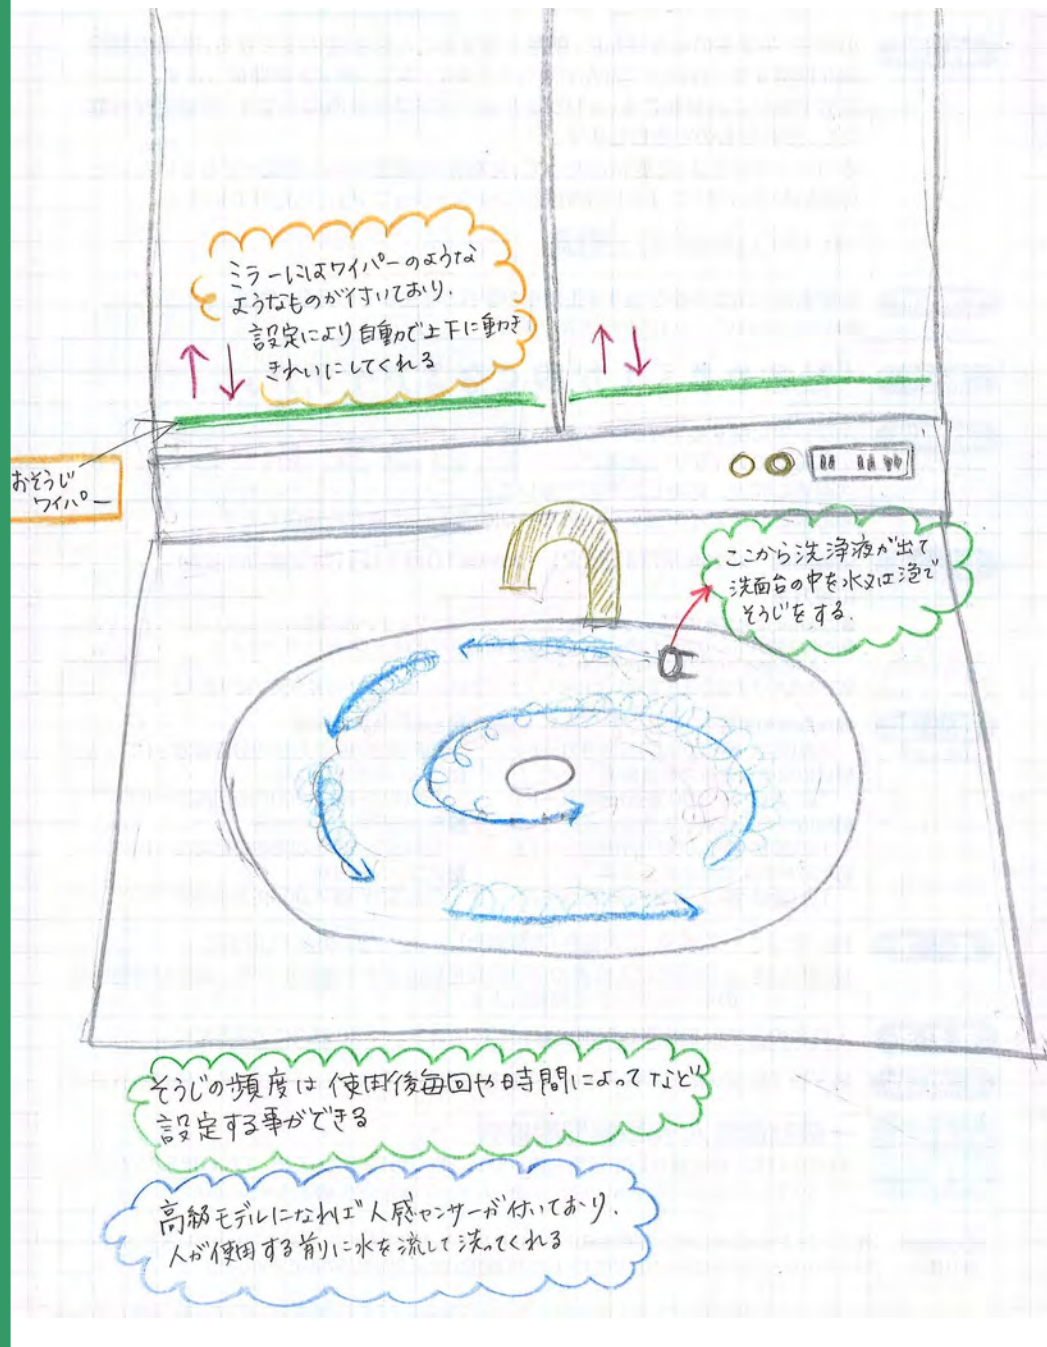 ミラーにはワイパーのような
ようなものが付いており、
設定により自動で上下に動き
きれいにしてくれる
おそうじ
ワイパー
ここから洗浄液が出て
洗面台の中を水又は泡で
そうじをする。
そうじの頻度は使用後毎回や時間によってなど
設定する事ができる
高級モデルになれば人感センサーが付いており、
人が使用する前に水を流して洗ってくれる